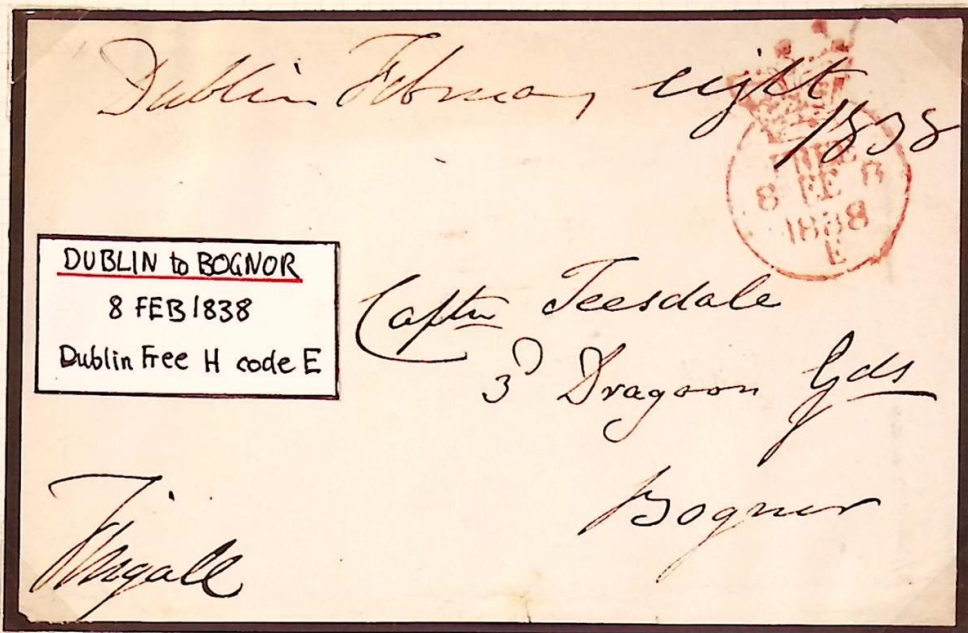 Dublin February eight
1838
FREE
8 FE 8
1838
E
DUBLIN to BOGNOR
8 FEB 1838
Dublin Free H code E
Captn Teesdale
3d Dragoon Gds
Bognor
Fingall